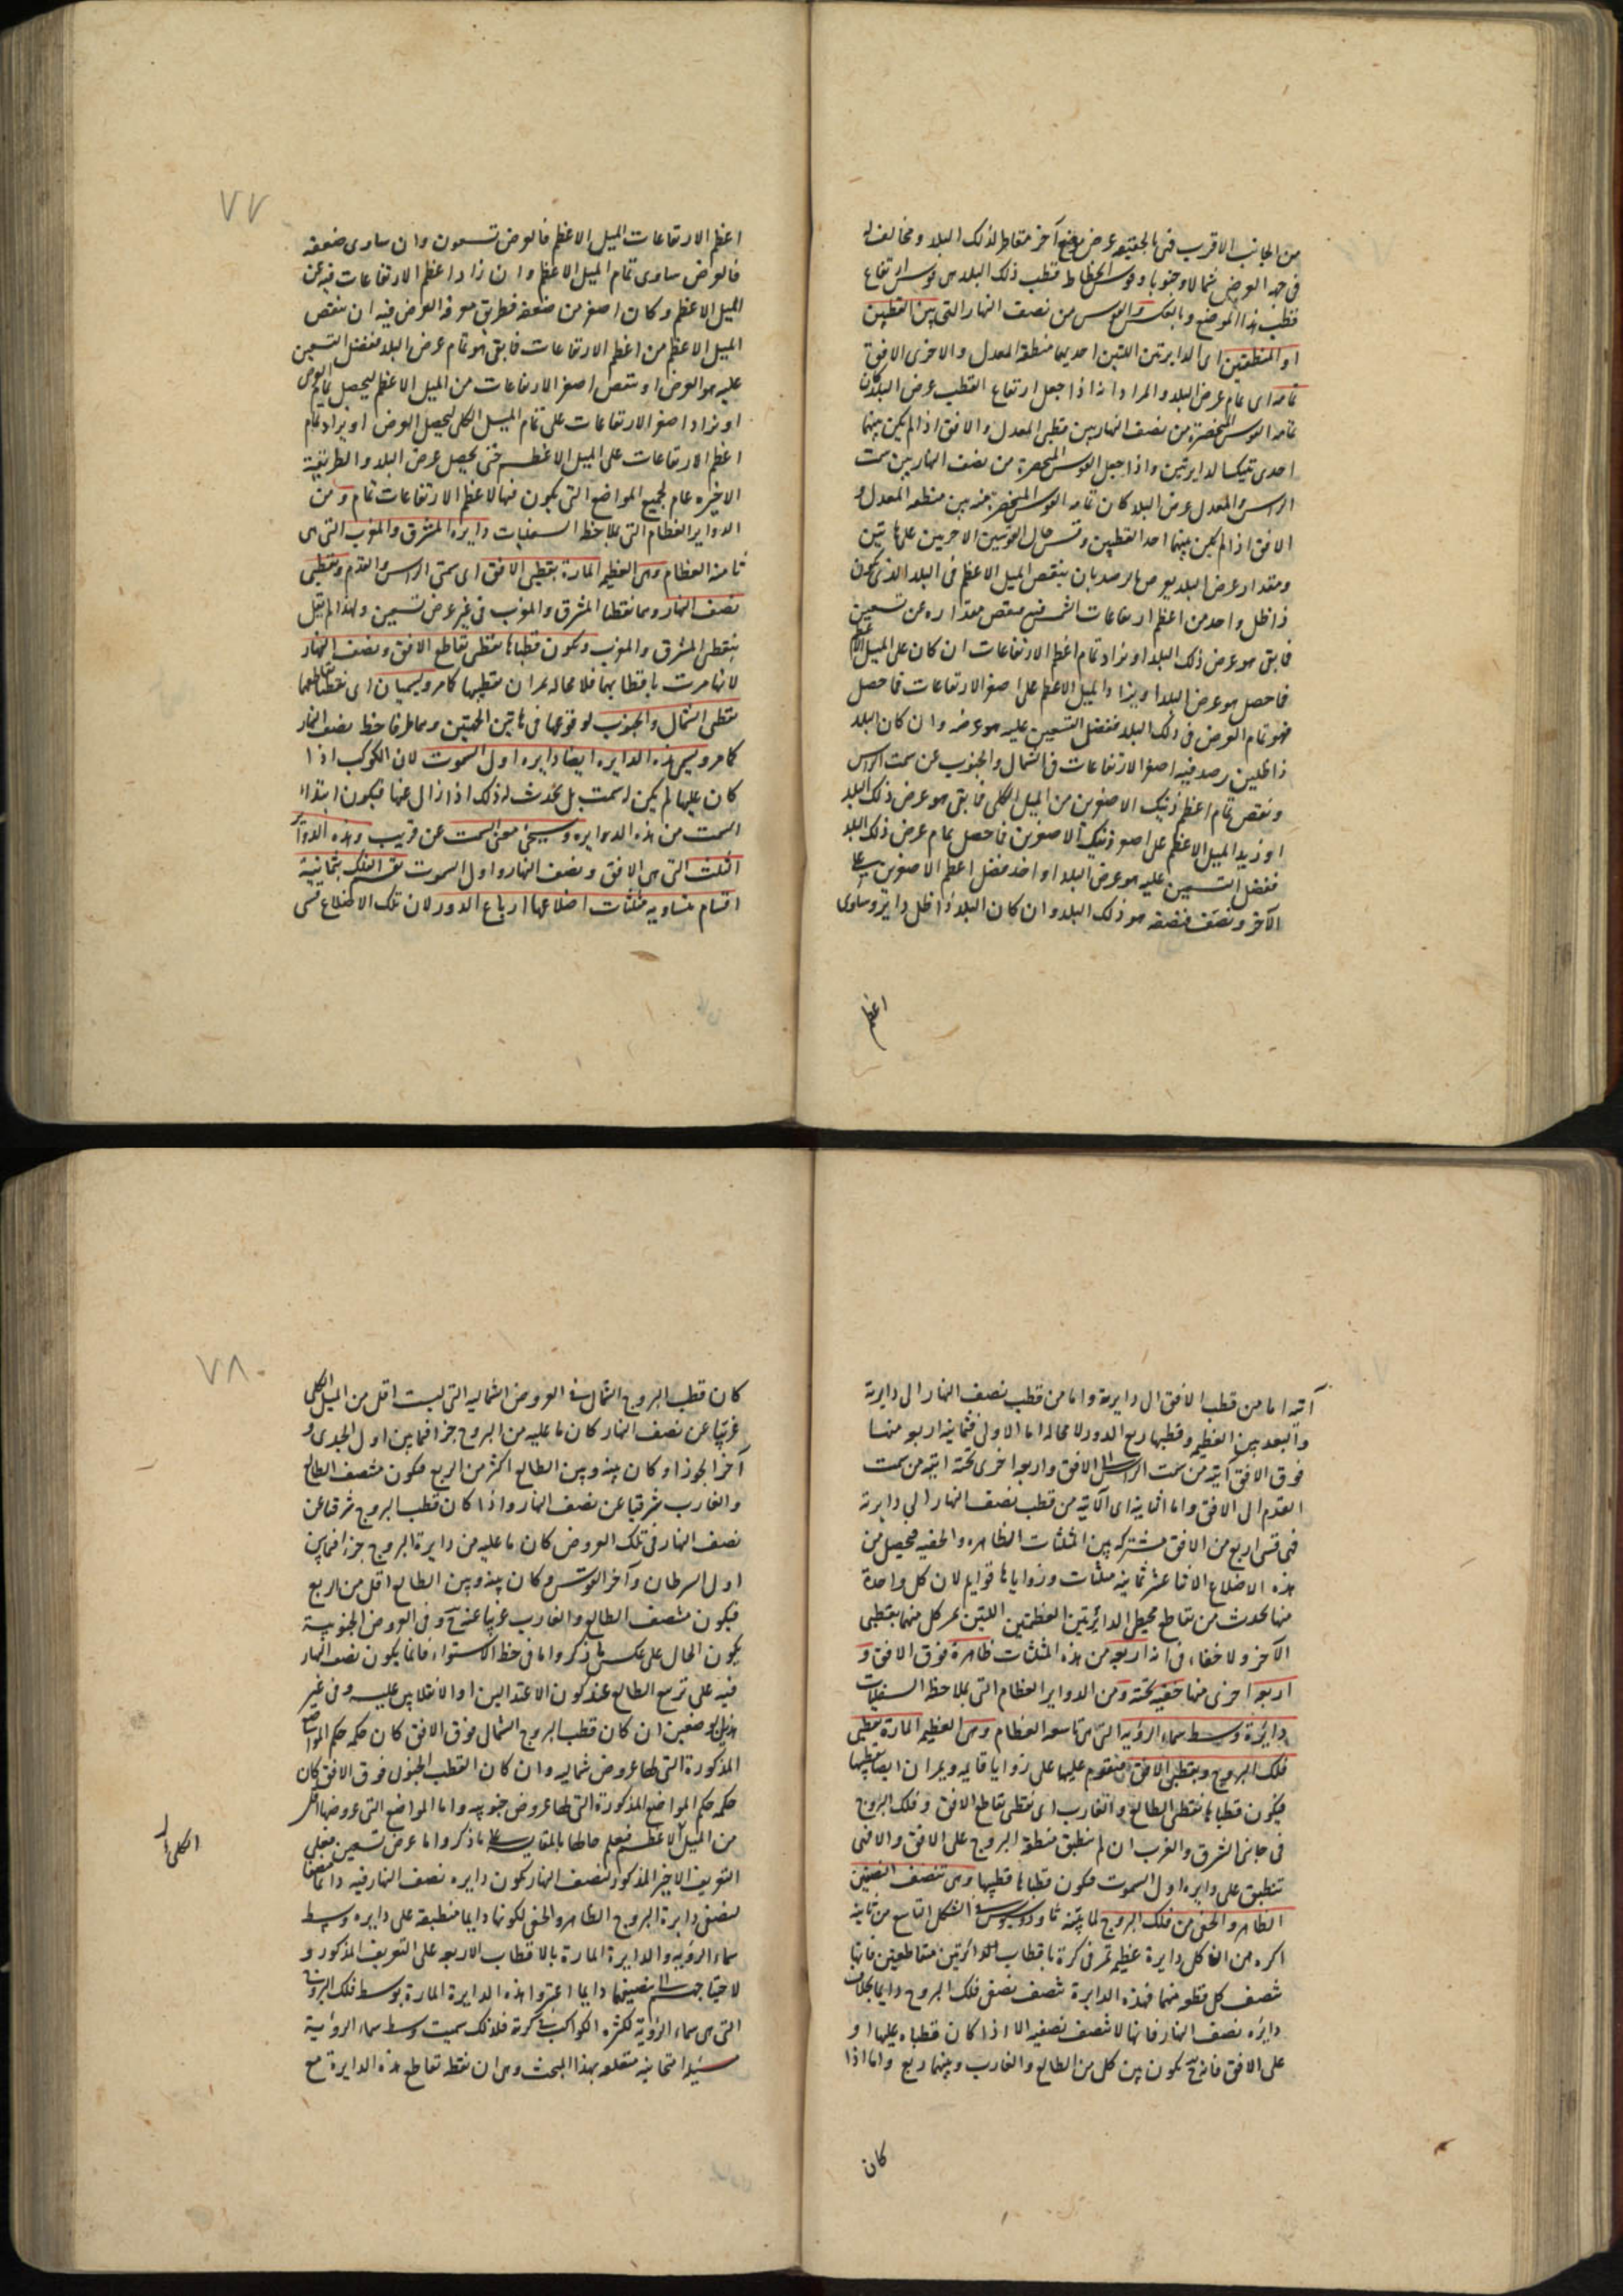 من الجانب الاقرب فهى بالحقيقة عرض موضع آخر مقاطر لذلك البلد ومخالف له
فى جهة العرض شمالا وجنوبا وقوس انحطاط قطب ذلك البلد هى قوس ارتفاع
قطب هذا الموضع وبالعكس والقوس من نصف النهار التى بين القطبين
او المنطقتين اى الدايرتين اللتين احديهما منطقة المعدل والاخرى الافق
تمامه اى تمام عرض البلد والمراد انه اذا جعل ارتفاع القطب عرض البلد كان
تمامه القوس المنحصرة من نصف النهار بين قطبى المعدل والافق اذا لم يكن بينهما
احدى تينك الدايرتين واذا جعل القوس المنحصرة من نصف النهار بين سمت
الراس والمعدل عرض البلد كان تمامه القوس المنحصرة منه بين منطقة المعدل و
الافق اذا لم يكن بينهما احد القطبين وقس حال القوسين الاخريين على هاتين
ومقدار عرض البلد يعرف بالرصد بان ينقص الميل الاعظم فى البلد الذى يكون
ذا ظل واحد من اعظم ارتفاعات الشمس فينقص مقداره عن تسعين
فما بقى هو عرض ذلك البلد او يزاد تمام اعظم الارتفاعات ان كان على الميل الاعظم
فما حصل هو عرض البلد او يزاد الميل الاعظم على اصغر الارتفاعات فما حصل
فهو تمام العرض فى ذلك البلد ففضل التسعين عليه هو عرضه وان كان البلد
ذا ظلين رصد فيه اصغر الارتفاعات فى الشمال والجنوب عن سمت الراس
ونقص تمام اعظم ذينك الاصغرين من الميل الكلى فما بقى هو عرض ذلك البلد
او زيد الميل الاعظم على اصغر ذينك الاصغرين فما حصل تمام عرض ذلك البلد
ففضل التسعين عليه هو عرض البلد او اخذ فضل اعظم الاصغرين على
الآخر ونصف فنصفه هو ذلك البلد وان كان البلد ذا ظل داير وساوى
اعظم
٧٧
اعظم الارتفاعات الميل الاعظم فالعرض تسعون وان ساوى ضعفه
فالعرض ساوى تمام الميل الاعظم وان زاد اعظم الارتفاعات فيه عن
الميل الاعظم وكان اصغر من ضعفه فطريق معرفة العرض فيه ان ينقص
الميل الاعظم من اعظم الارتفاعات فما بقى هو تمام عرض البلد ففضل التسعين
عليه هو العرض او ينقص اصغر الارتفاعات من الميل الاعظم ليحصل تمام العرض
او يزاد اصغر الارتفاعات على تمام الميل الكلى ليحصل العرض او يزاد تمام
اعظم الارتفاعات على الميل الاعظم حتى يحصل عرض البلد والطريقة
الاخيره عام لجميع المواضع التى يكون فيها لاعظم الارتفاعات تمام ومن
الدواير العظام التى بملاحظة السفليات دايرة المشرق والمغرب التى هى
ثامنة العظام وهى العظيمة المارة بقطبى الافق اى سمتى الراس والقدم وبقطبى
نصف النهار وهما نقطتا المشرق والمغرب فى غير عرض تسعين ولهذا لم يقل
بنقطتى المشرق والمغرب ويكون قطباها نقطتى تقاطع الافق ونصف النهار
لانها مرت باقطابهما فلا محالة يمران بقطبيها كما مر ويسميان اى نقطتا تقاطعهما
نقطتى الشمال والجنوب لوقوعهما فى هاتين الجهتين وهما طرفا خط نصف النهار
كما مر ويسمى هذه الدايرة ايضا دايرة اول السموت لان الكوكب اذا
كان عليها لم يكن له سمت بل يحدث له ذلك اذا زال عنها فيكون ابتداء
السمت من هذه الدايره وسيجئ معنى السمت عن قريب وهذه الدوائر
الثلث التى هى الافق ونصف النهار واول السموت تقسم الفلك بثمانية
اقسام متساوية مثلثات اضلاعها ارباع الدور لان تلك الاضلاع قسى
آتية اما من قطب الافق الى دايرته واما من قطب نصف النهار الى دايرته
والبعد بين العظيمة وقطبها ربع الدور لا محالة اما الاولى فثمانية اربعة منها
فوق الافق آتية من سمت الراس الى الافق واربعة اخرى تحته آتية من سمت
القدم الى الافق واما الثانية اى الآتية من قطب نصف النهار الى دايرته
فهى قسى اربع من الافق مشتركة بين المثلثات الظاهرة والخفية فيحصل من
هذه الاضلاع الاثنا عشر ثمانية مثلثات وزواياها قوايم لان كل واحدة
منها يحدث من تقاطع محيطى الدائرتين العظيمتين اللتين يمر كل منهما بقطبى
الآخر ولا خفاء فى ان اربعة من هذه المثلثات ظاهرة فوق الافق و
اربعة اخرى منها خفية تحته ومن الدواير العظام التى بملاحظة السفليات
دايرة وسط سماء الرؤية التى هى تاسعة العظام وهى العظيمة المارة بقطبى
فلك البروج وبقطبى الافق فتقوم عليها على زوايا قايمة ويمران ايضا بقطبيها
فيكون قطباها نقطتى الطالع والغارب اى نقطتى تقاطع الافق وفلك البروج
فى جانبى الشرق والغرب ان لم تنطبق منطقة البروج على الافق والافهى
تنطبق على دايرة اول السموت فيكون قطباها قطبيها وهى تنصف النصفين
الظاهر والخفى من فلك البروج لما بيّنه ثاوذوسيوس فى الشكل التاسع من ثانية
اكره من ان كل دايرة عظيمة تمر فى كرة باقطاب الدائرتين متقاطعتين فانها
تنصف كل قطعة منهما فهذه الدايرة تنصف نصفى فلك البروج دايما بخلاف
دائرة نصف النهار فانها لا تنصف نصفيه الا اذا كان قطباه عليها او
على الافق فانه ح يكون بين كل من الطالع والغارب وبينهما ربع واما اذا
كان
٧٨
كان قطب البروج الشمالى فى العروض الشمالية التى ليست اقل من الميل الكلى
غربيا عن نصف النهار كان ما عليه من البروج جزءا فيما بين اول الجدى و
آخر الجوزاء وكان بينه وبين الطالع اكثر من الربع فيكون منتصف الطالع
والغارب شرقيا عن نصف النهار واذا كان قطب البروج شرقيا عن
نصف النهار فى تلك العروض كان ما عليه من دايرة البروج جزءا فيما بين
اول السرطان وآخر القوس وكان بينه وبين الطالع اقل من الربع
فيكون منتصف الطالع والغارب غربيا عنه ح وفى العروض الجنوبية
يكون الحال على عكس ما ذكر واما فى خط الاستواء فانما يكون نصف النهار
فيه على تربيع الطالع عند كون الاعتدالين او الانقلابين عليه وفى غير
هذين الوضعين ان كان قطب البروج الشمالى فوق الافق كان حكمه حكم المواضع
المذكورة التى لها عروض شمالية وان كان القطب الجنوبى فوق الافق كان
حكمه حكم المواضع المذكورة التى لها عروض جنوبية واما المواضع التى عروضها اقل
من الميل الاعظم فيعلم حالها بالمقايسة على ما ذكر واما عرض تسعين فعلى
التعريف الاخير المذكور لنصف النهار يكون دايرة نصف النهار فيه دائما منصفا
لنصفى دايرة البروج الظاهر والخفى لكونها دايما منطبقة على دايره وسط
سماء الرؤية والدايرة المارة بالاقطاب الاربعة على التعريف المذكور و
لاحتياجهم الى تنصيفها دايما اعتبروا هذه الدايرة المارة بوسط فلك البروج
التى هى سماء الرؤية لكثرة الكواكب فى كرته فلذلك سميت وسط سماء الرؤية
امتحانية متعلقة بهذا البحث وهى ان نقطة تقاطع هذه الدايرة مع
الكلى